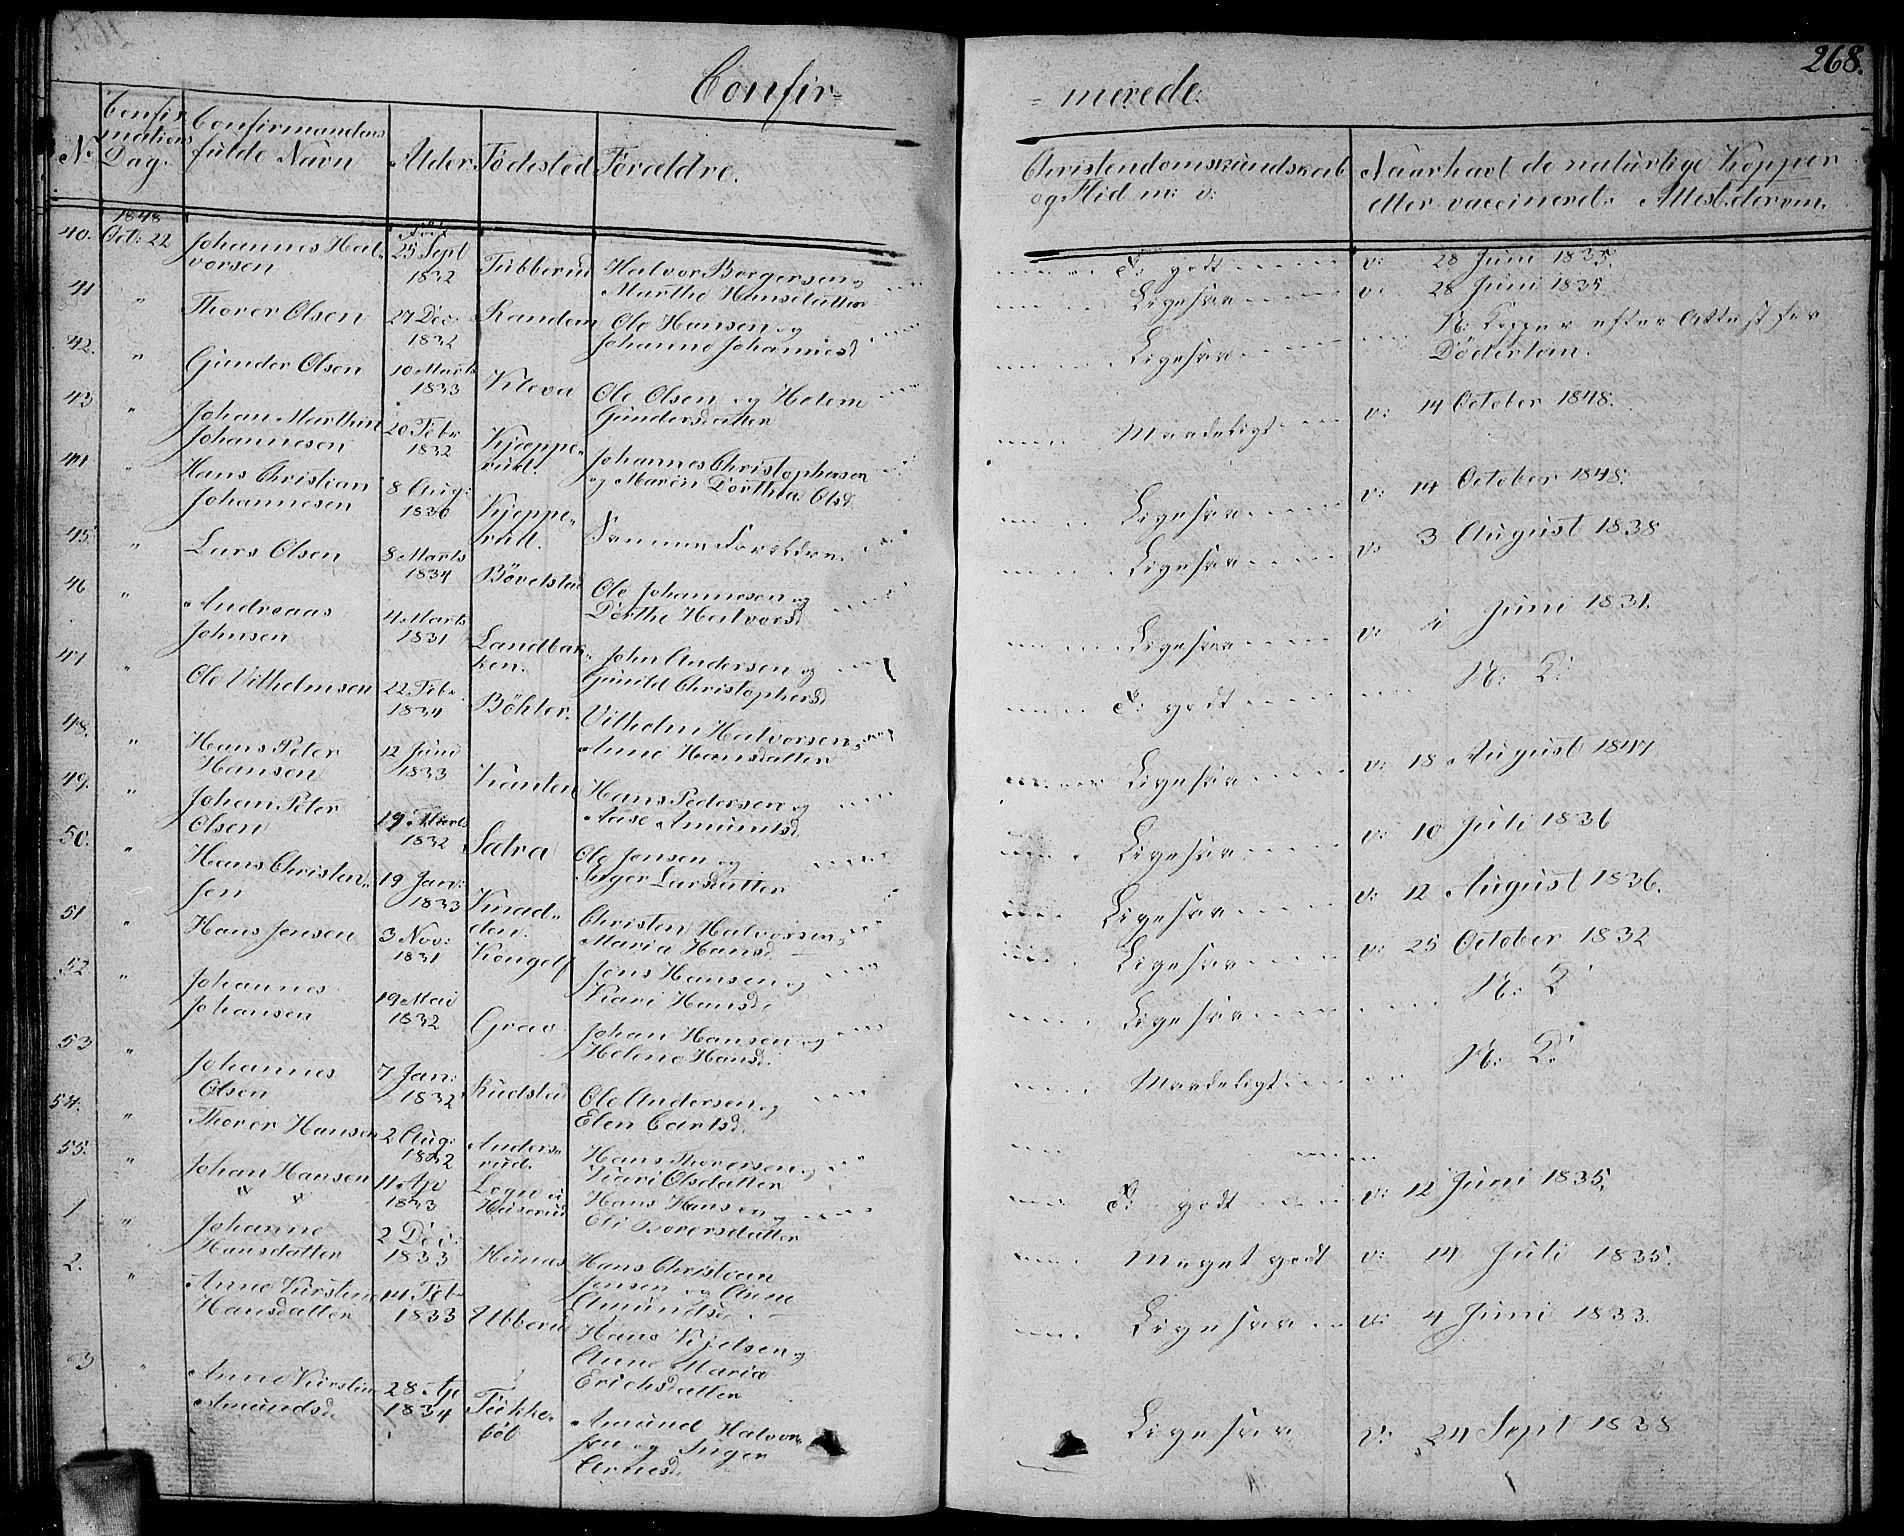 268.
Confir=
= merede.
No.
Confir
mations
Dag.
Confirmandens
fulde Navn
Alder
Födested
Forældre.
Christendomskundskab
og Flid m: v:
Naar havt de naturlige Kopper
eller vaccineret. Attest derom.
40. 1848 Oct: 22 Johannes Hal-
vorsen
25 Sept
1832
Tubberud
Halvor Borgersen og
Marthe Hansdatter
T: godt
v: 28 Juni 1835.
41 " Thorer Olsen
27 Dec:
1832
Randem
Ole Hansen og
Johanne Johannesd
Ligesaa
v: 28 Juni 1835.
42. " Gunder Olsen
10 Marts
1833
Kleva
Ole Olsen og Helem
Gundersdatter
Ligesaa
N: Kopper efter Attest fra
Döderlein.
43 " Johan Marthin
Johannesen
20 Febr
1832
Kjeppe-
rud.
Johannes Christophersen
og Maren Dorthea Olsd.
Maadeligt
v: 14 October 1848.
44 " Hans Christian
Johannesen
8 Aug:
1830
Kjeppe-
rud.
Samme Forældre.
Ligesaa
v: 14 October 1848.
45. " Lars Olsen
8 Marts
1834
Bövelstad
Ole Johannesen og
Dorthe Halvorsd
Ligesaa
v: 3 August 1838
46 " Andreas
Johnsen
4 Marts
1831
Landbak-
ken.
John Andersen og
Gunild Christophersd
Ligesaa
v: 4 Juni 1831.
47 " Ole Vilhelmsen
22 Febr.
1834
Böhler.
Vilhelm Halvorsen og
Anne Hansdatter
T: godt
N: K:
48. " Hans Peter
Hansen
12 Juni
1833
Hans Pedersen og
Aase Amundsd.
Ligesaa
v: 18 August 1847
49. " Johan Peter
Olsen
19 Marts
1832
Satra
Ole Jensen og
Inger Larsdatter
Ligesaa
v: 10 Juli 1836
50. " Hans Christen-
sen
19 Jan:
1833
Knad-
den.
Christen Halvorsen og
Maria Hansd.
Ligesaa
v: 12 August 1836.
51 " Hans Jensen
3 Nov:
1831
Kongelf
Jens Hansen og
Kari Hansd.
Ligesaa
v: 25 October 1832
52 " Johannes
Johansen
19 Mai
1832
Grav
Johan Hansen og
Helene Hansd.
Ligesaa
N: K:
53 " Johannes
Olsen
7 Jan:
1832
Rudstad
Ole Andersen og
Elen Carlsd.
Maadeligt
N: K:
54. " Thorer Hansen
2 Aug:
1832
Anders-
rud.
Hans Thoresen og
Kari Olsdatter
55. " Johan Hansen
11 Ap
1833
Huserud
Hans Hansen og
Eli Borersdatter
T: godt
v: 12 Juni 1835.
1 " Johanne
Hansdatter
2 Dec:
1833
Hunas
Hans Christian
Jensen og Anne
Amundsd.
Meget godt
v: 14 Juli 1835.
2. " Anne Kirstine
Hansdatter
14 Feb
1833
Ubberud
Hans Kjelsen og
Anne Maria
Erichsdatter
Ligesaa
v: 4 Juni 1833.
3 " Anne Kirstine
Amundsd.
28 Ap
1834
Tukke-
böl
Amund Halvor-
sen og Inger
Arnesd.
Ligesaa
v: 24 Sept 1838